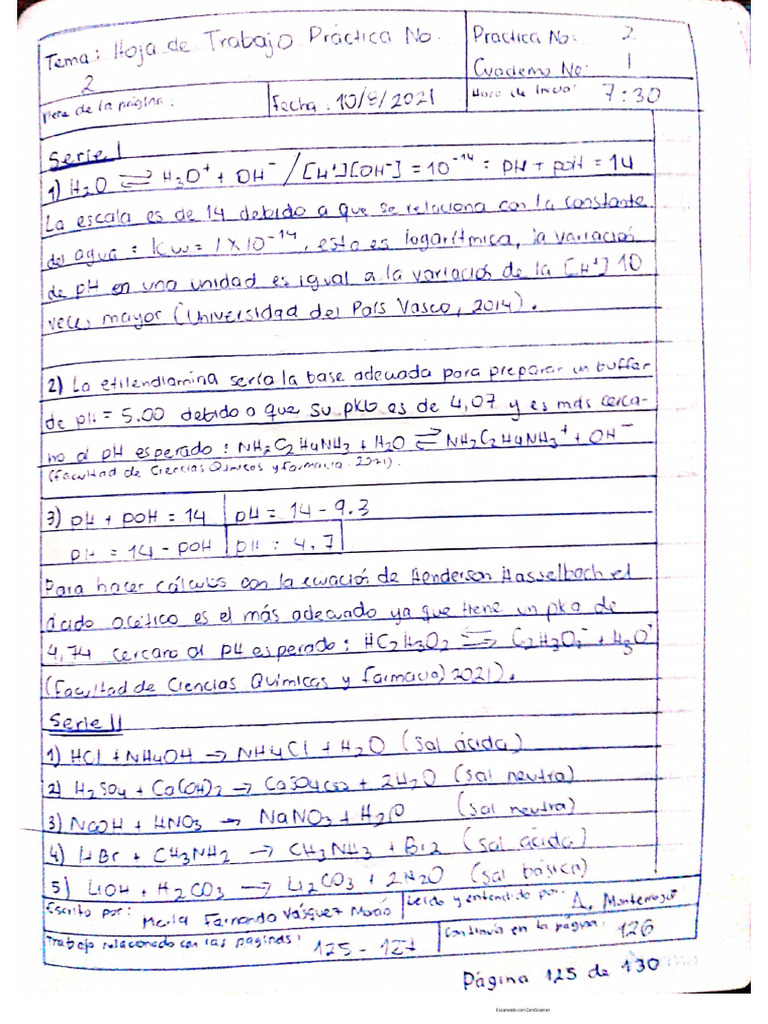 Tema: Hoja de Trabajo Práctica No.
2
Practica No: 2
Cuaderno No: 1
Viene de la página:
Fecha: 10/8/2021
Hora de Inicio: 7:30
Serie I
1) H2O ⇌ H2O+ + OH- / [H+][OH-] = 10^-14 = pH + pOH = 14
La escala es de 14 debido a que se relaciona con la constante
del agua = Kw = 1x10^-14, esta es logarítmica, la variación
de pH en una unidad es igual a la variación de la [H+] 10
veces mayor (Universidad del País Vasco, 2014).
2) La etilendiamina sería la base adecuada para preparar un buffer
de pH = 5.00 debido a que su pkb es de 4,07 y es más cerca-
no al pH esperado: NH2C2H4NH2 + H2O ⇌ NH2C2H4NH3+ + OH-
(Facultad de Ciencias Químicas y farmacia. 2021).
3) pH + pOH = 14 | pH = 14 - 9.3
pH = 14 - pOH | pH = 4,7
Para hacer cálculos con la ecuación de Henderson Hasselbach el
ácido acético es el más adecuado ya que tiene un pka de
4,74 cercano al pH esperado: HC2H3O2 ⇌ C2H3O2- + H3O+
(Facultad de Ciencias Químicas y farmacia, 2021).
Serie II
1) HCl + NH4OH → NH4Cl + H2O (sal ácida)
2) H2SO4 + Ca(OH)2 → CaSO4(s) + 2H2O (sal neutra)
3) NaOH + HNO3 → NaNO3 + H2O (sal neutra)
4) HBr + CH3NH2 → CH3NH3 + Br2 (sal ácida)
5) LiOH + H2CO3 → Li2CO3 + 2H2O (sal básica)
Escrito por: Fernanda Vásquez
Leido y entendido por: A. Monterroso
Trabajo relacionado con las paginas: 125 - 127
Continúa en la página: 126
Página 125 de 130
Escaneado con CamScanner